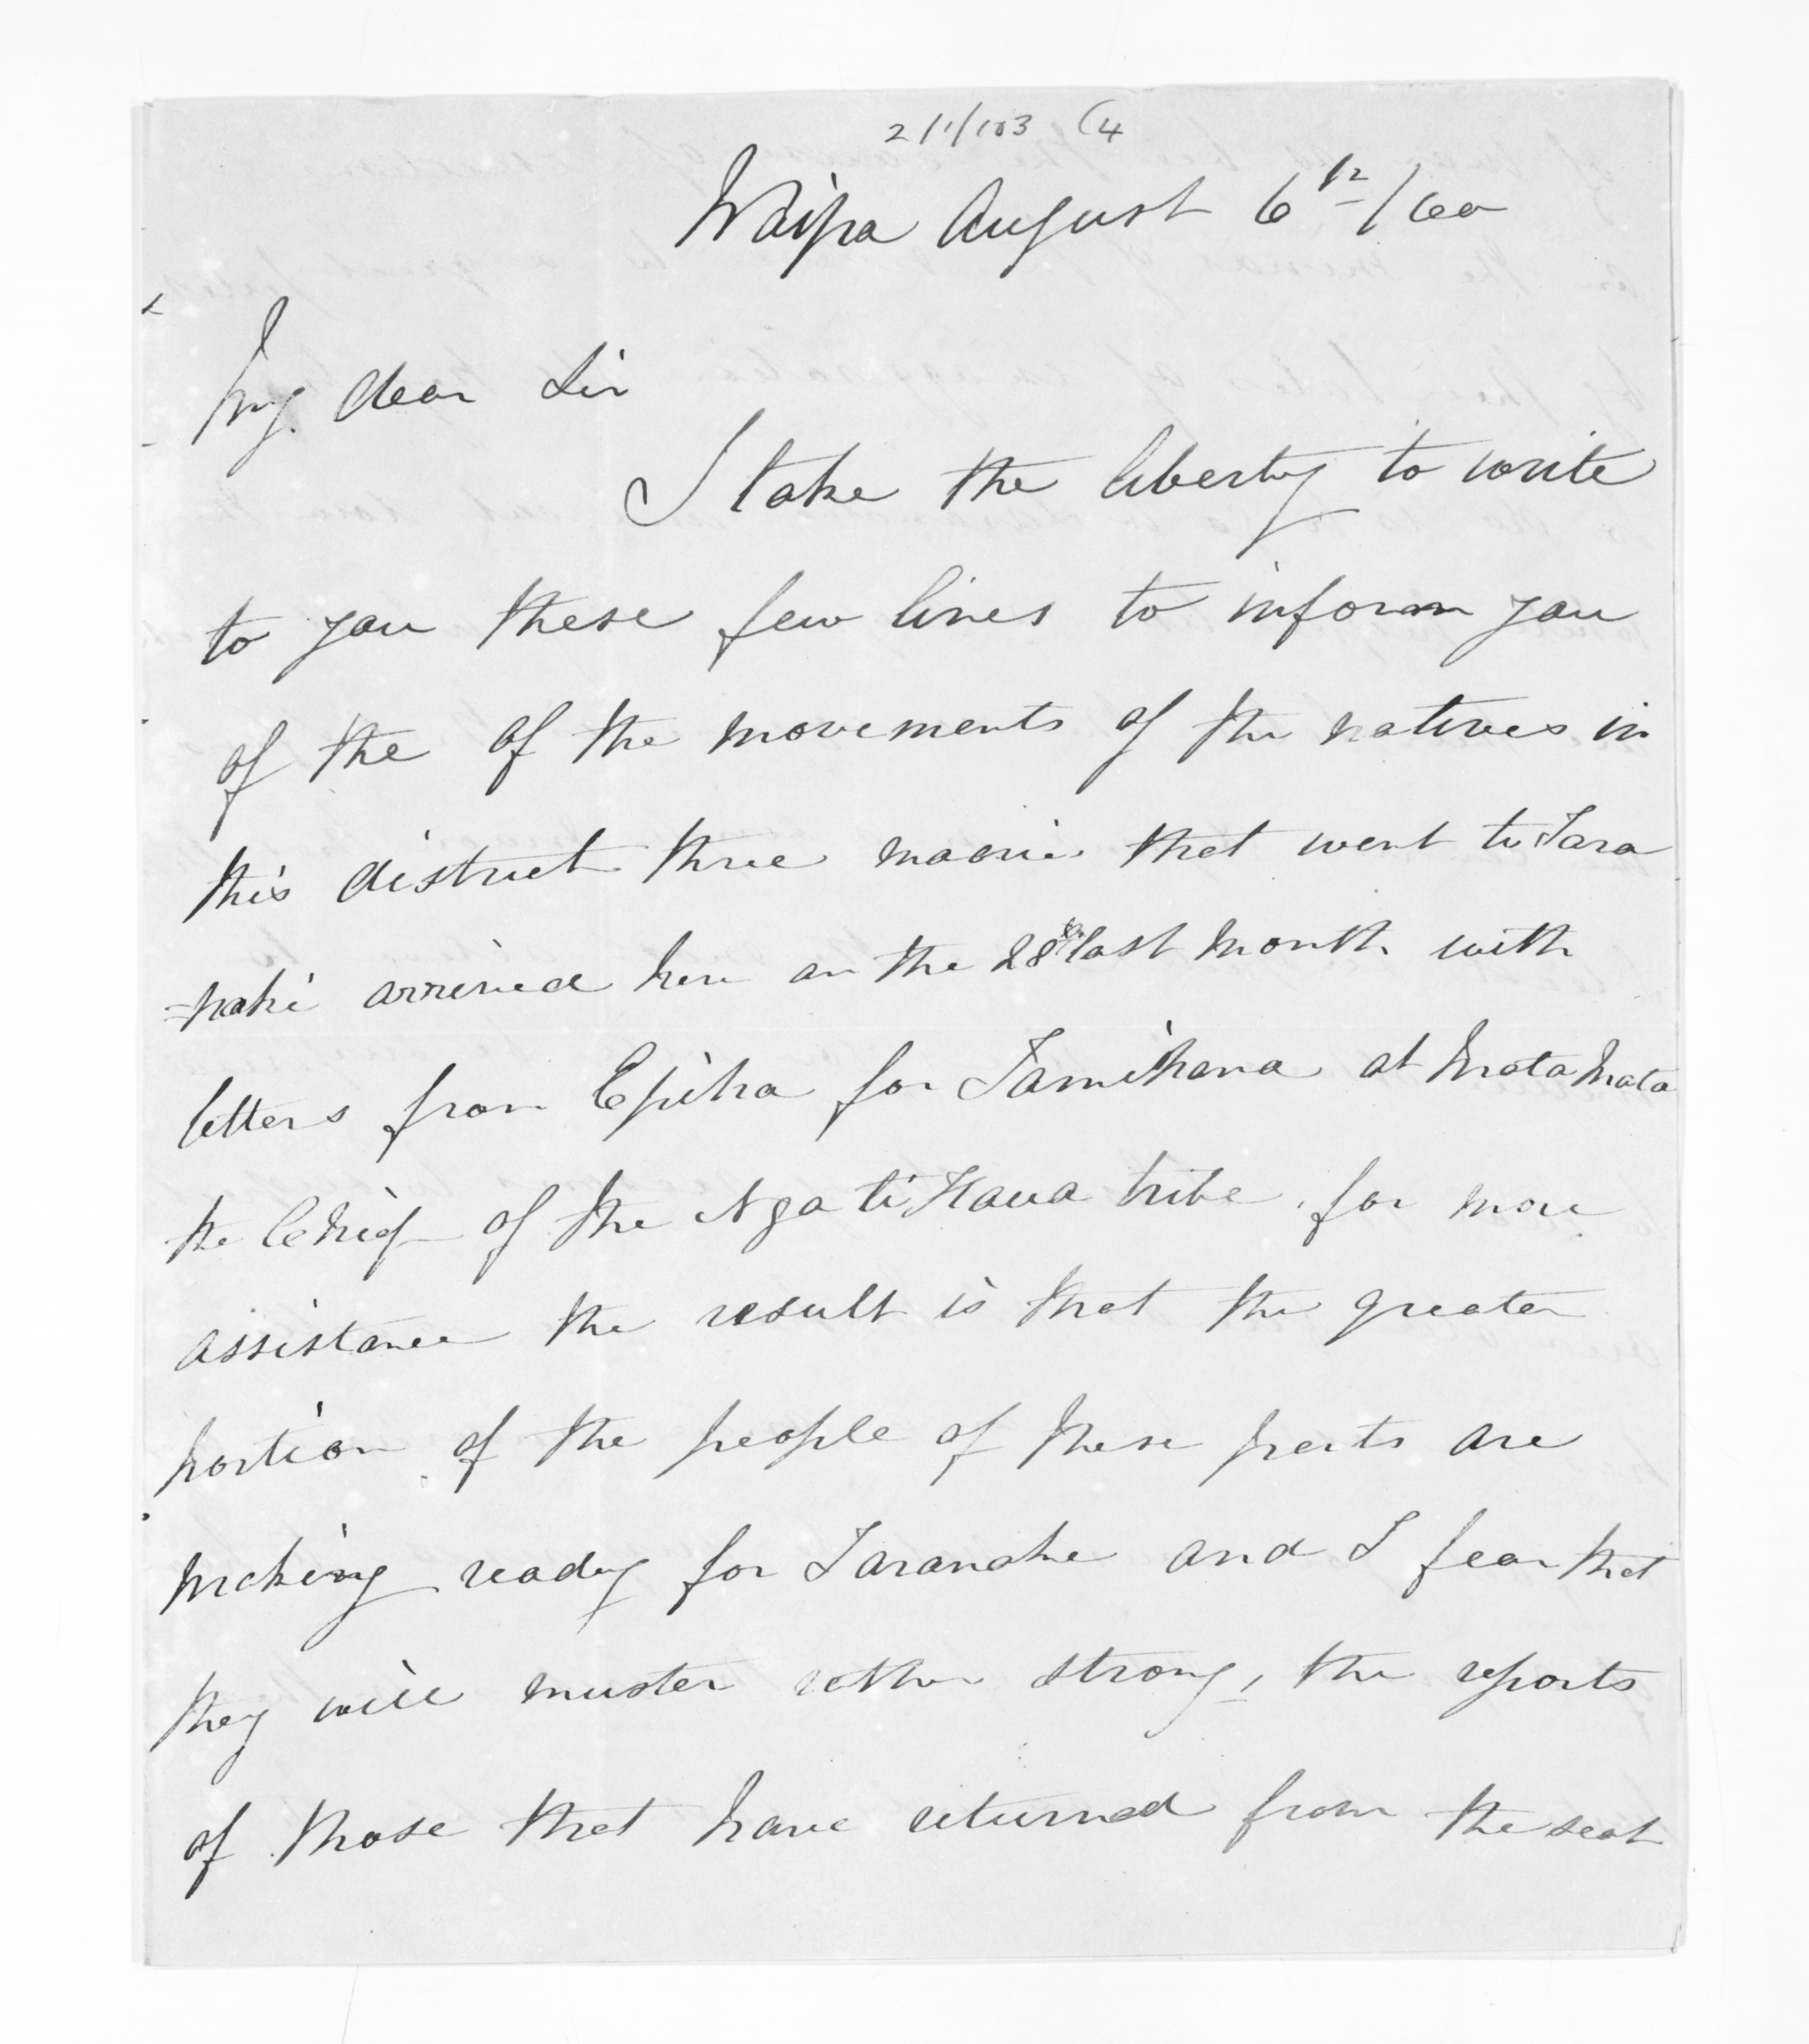 2/1/103 (4
Waipa August 6th/60
My dear Sir
I take the liberty to write
to you these few lines to inform you
of the of the movements of the natives in
this district three maories that went to Tara
=naki arrived here on the 28th last month with
letters from Epiha for Tamihana at Mata Mata
the Chief of the Ngati Haua tribe for more
assistance the result is that the greater
portion of the people of these parts are
making ready for Taranake and I fear that
they will muster rather strong, the reports
of those that have returned from the seat